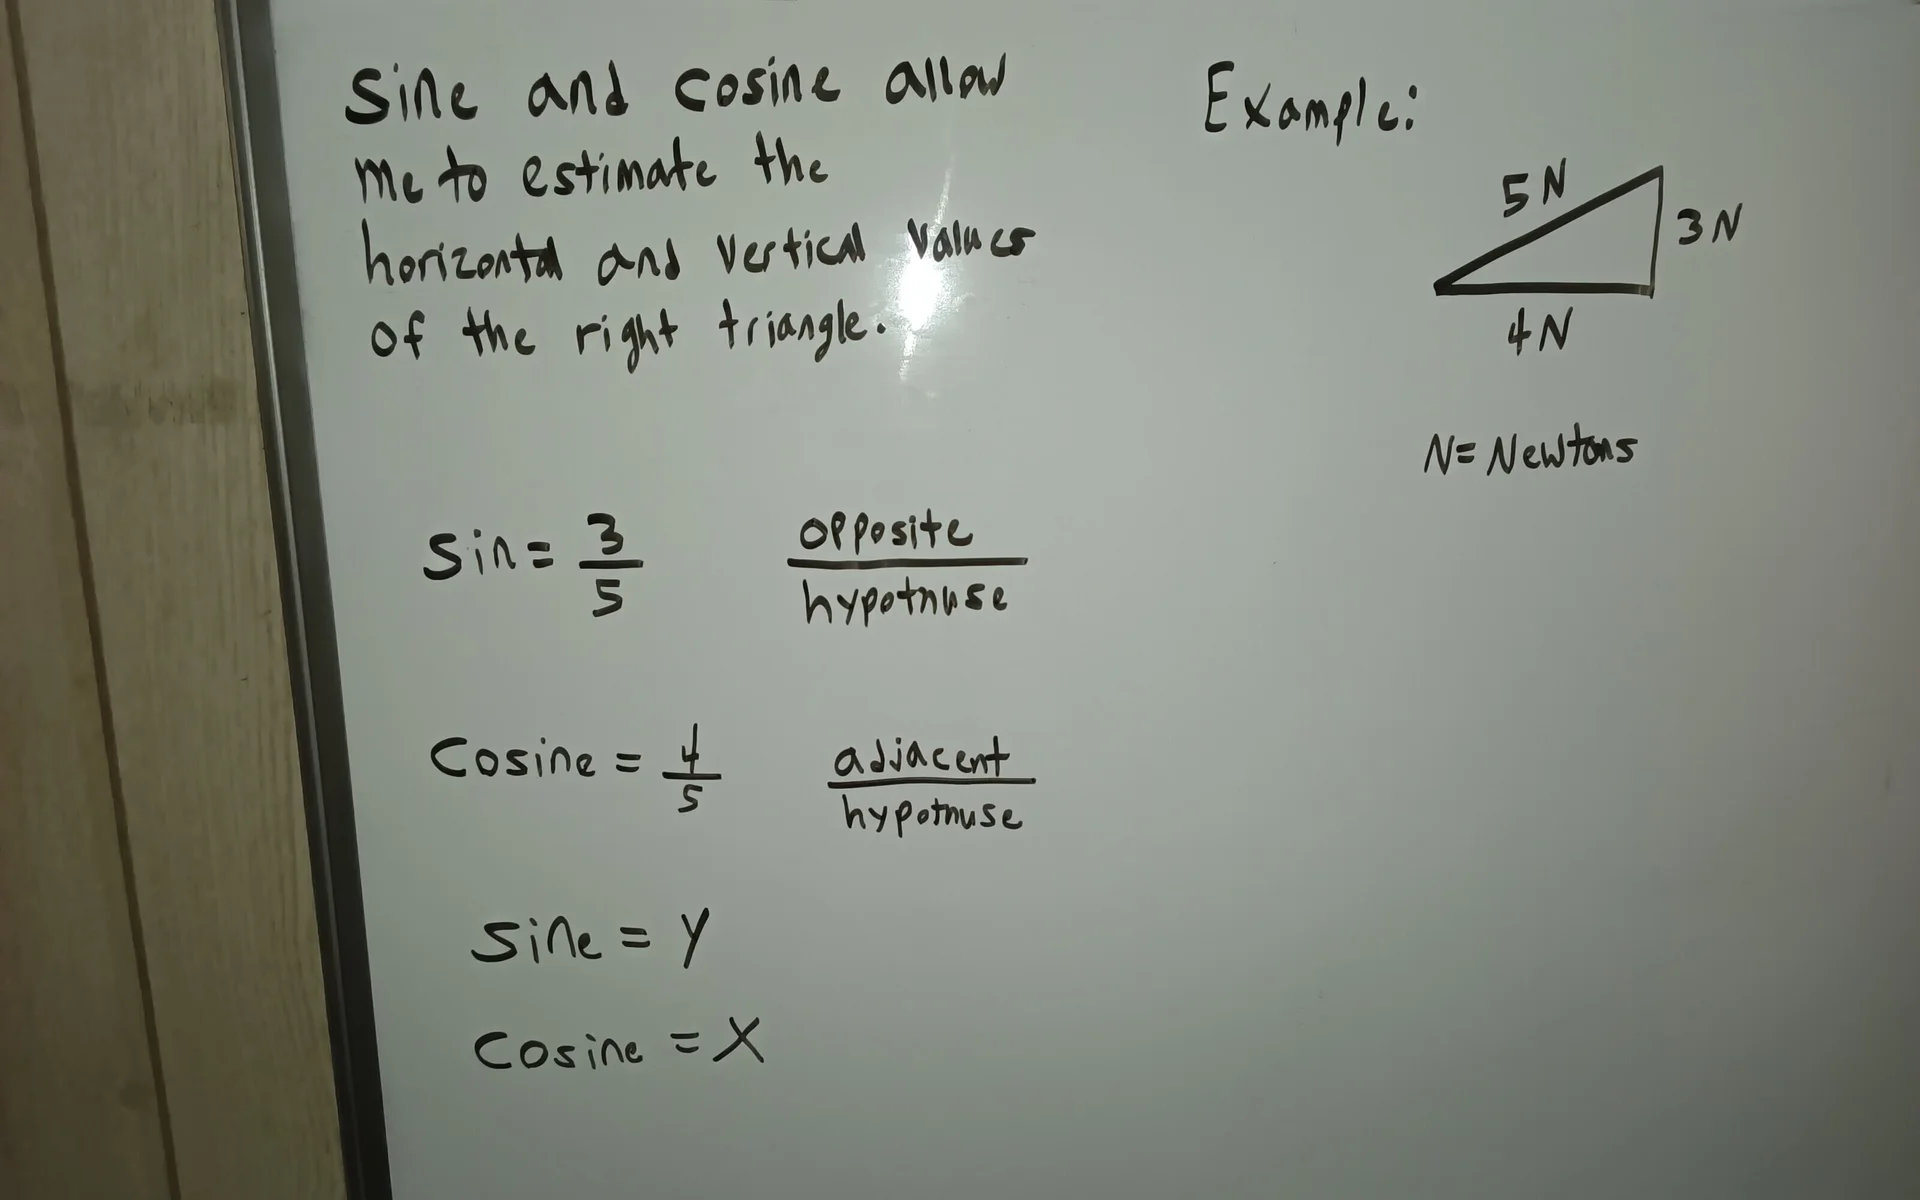 Sine and cosine allow
me to estimate the
horizontal and vertical values
of the right triangle.
Example:
5N
3N
4N
N= Newtons
Sin= 3/5
opposite
hypotnuse
Cosine = 4/5
adjacent
hypotnuse
Sine = Y
Cosine = X